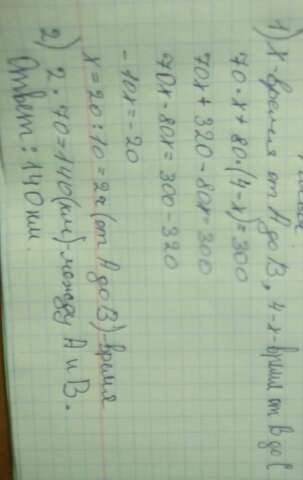 1) х-время от А до В, 4-х-время от В до С
70·х + 80·(4-х)=300
70х + 320-80х=300
70х-80х=300-320
-10х=-20
х=20:10=2ч (от А до В)-время
2) 2·70=140(км)-между А и В.
Ответ: 140км.